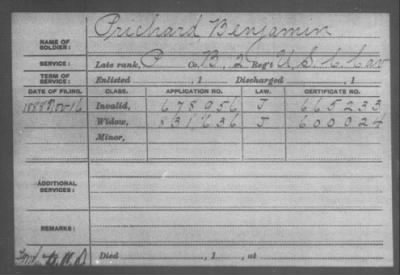 NAME OF SOLDIER: Prichard Benjamin
SERVICE: Late rank, P Co. B, 2 Reg't U. S. C Cav
TERM OF SERVICE: Enlisted , 1 Discharged , 1
DATE OF FILING. CLASS. APPLICATION NO. LAW. CERTIFICATE NO.
1888 Invalid, 678056 J 665233
Widow, 831636 J 600024
Minor,
ADDITIONAL SERVICES:
REMARKS:
Died , 1 , at